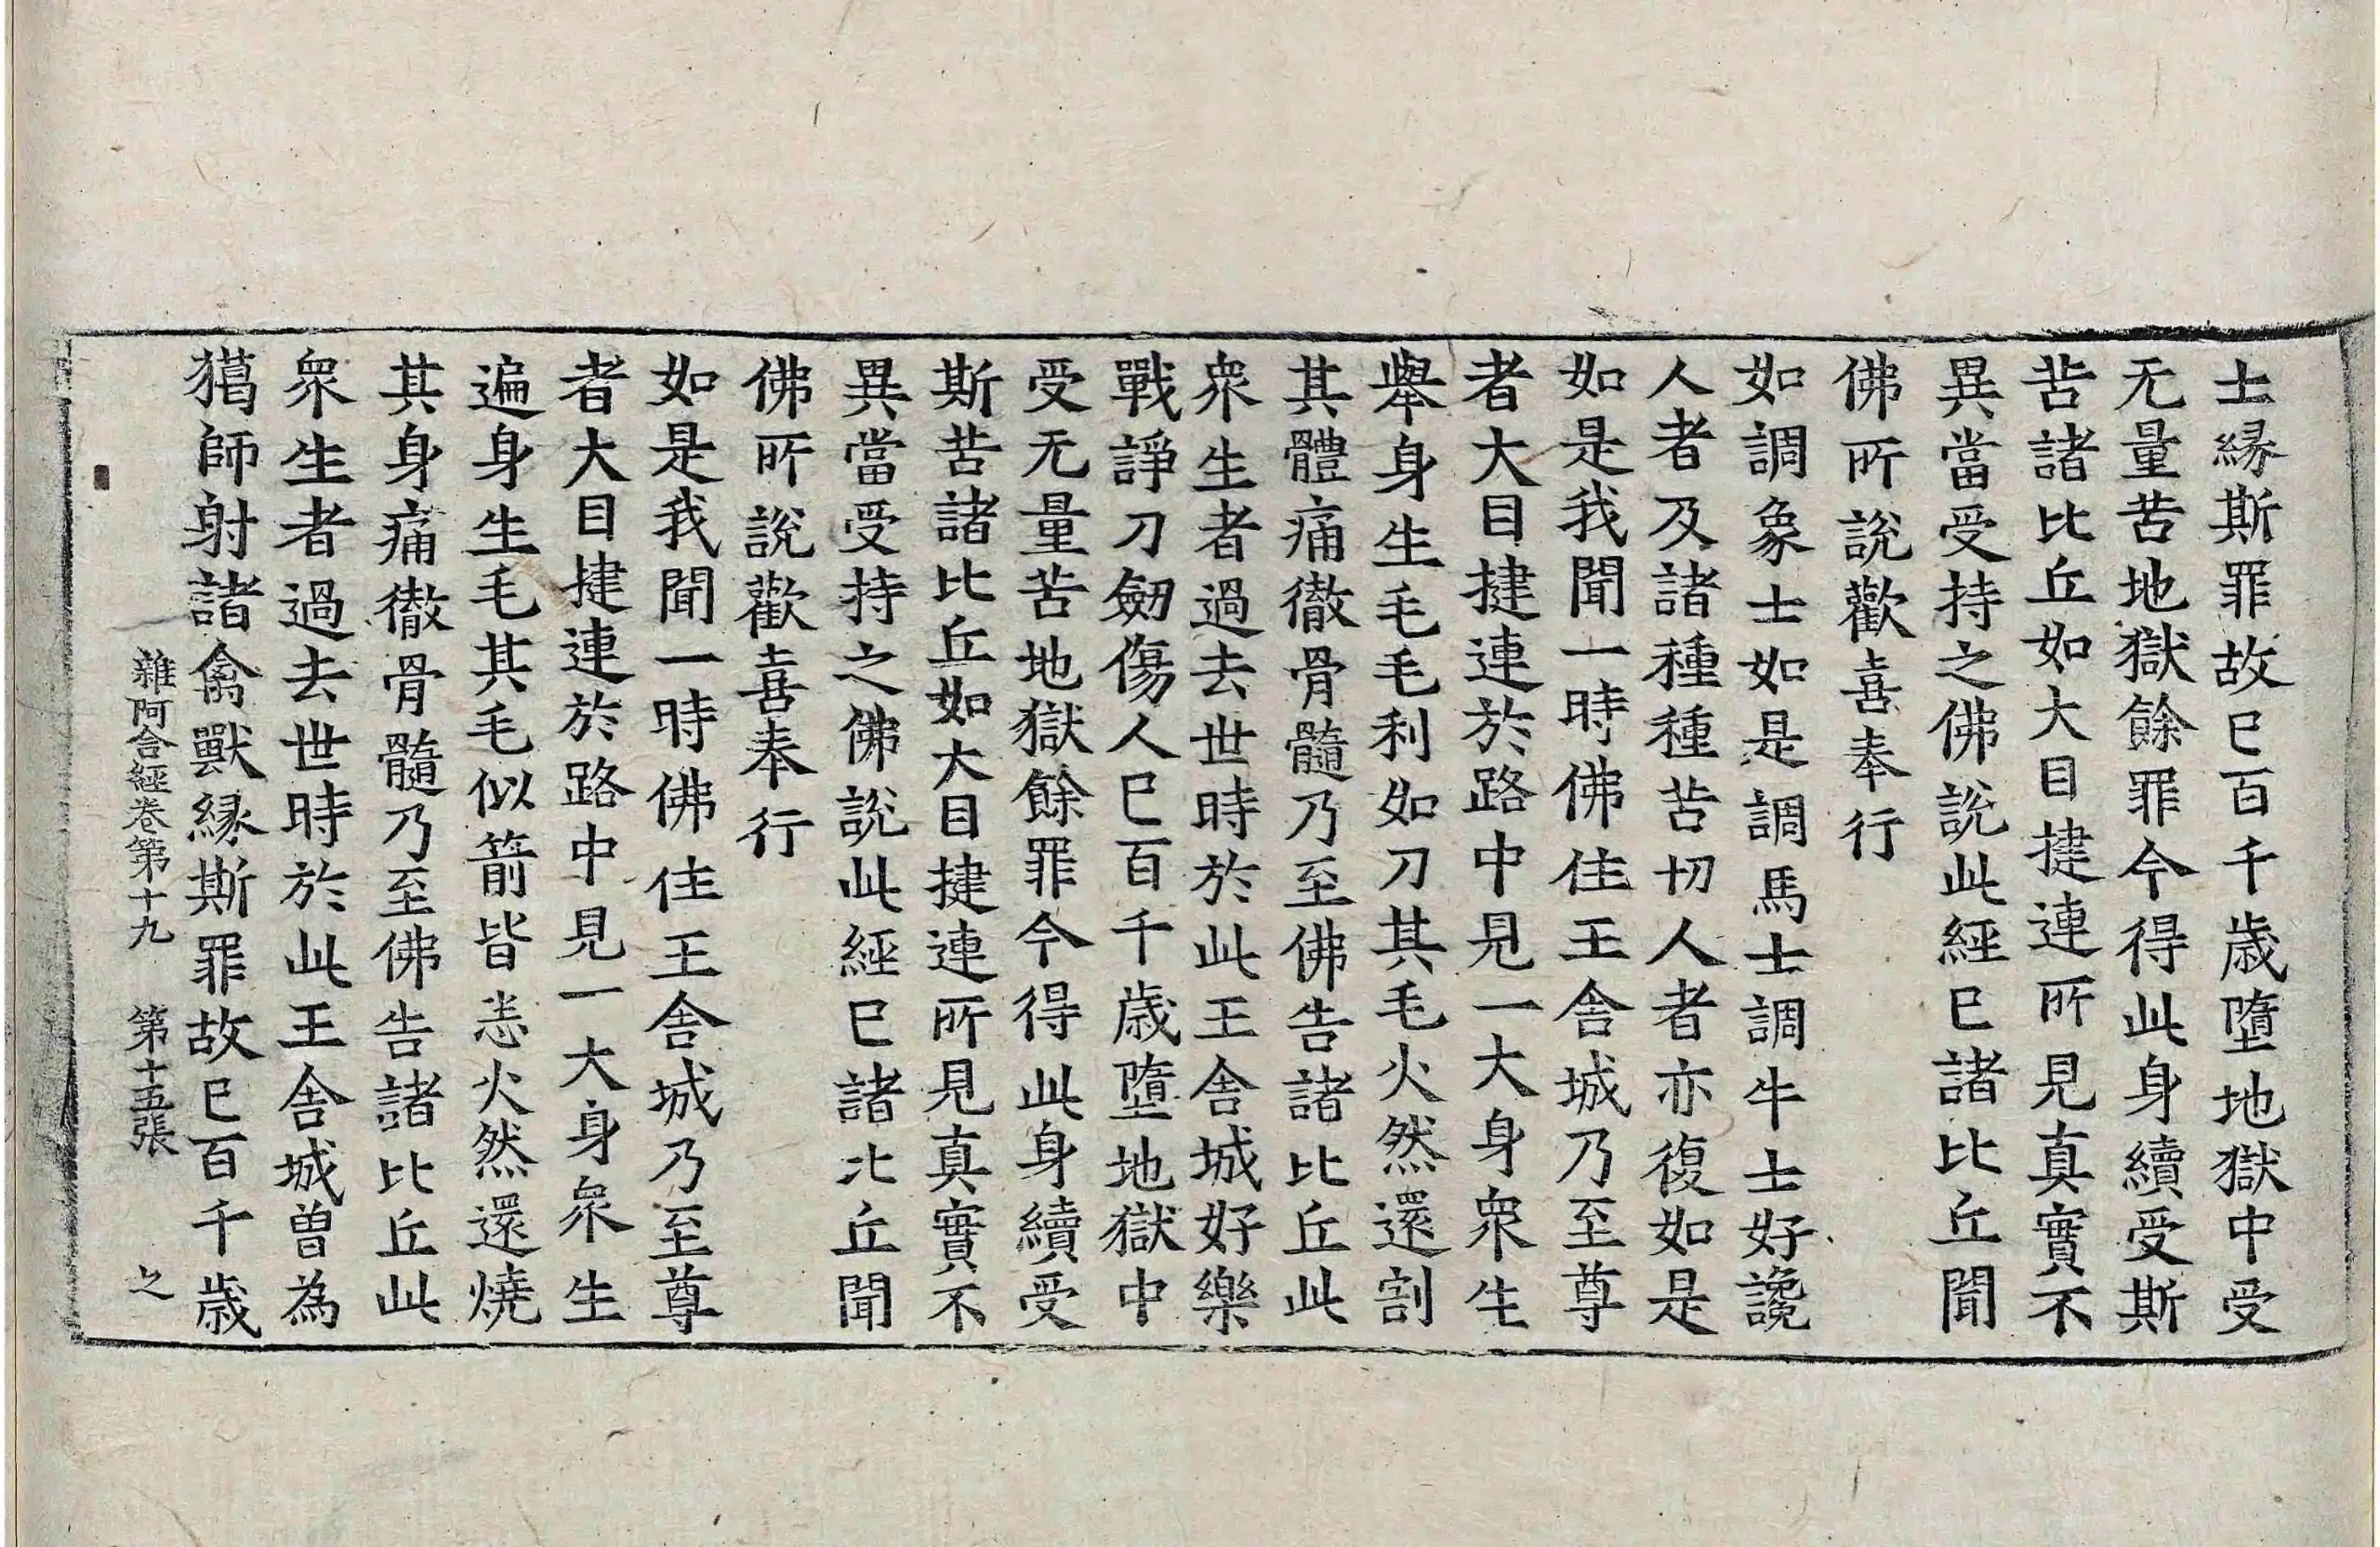 士縁斯罪故已百千歳墮地獄中受
无量苦地獄餘罪今得此身續受斯
苦諸比丘如大目揵連所見真實不
異當受持之佛說此經已諸比丘聞
佛所說歡喜奉行
如調象士如是調馬士調牛士好讒
人者及諸種種苦切人者亦復如是
如是我聞一時佛住王舍城乃至尊
者大目揵連於路中見一大身衆生
舉身生毛毛利如刀其毛火然還割
其體痛徹骨髓乃至佛告諸比丘此
衆生者過去世時於此王舍城好樂
戰諍刀劒傷人已百千歳墮地獄中
受无量苦地獄餘罪今得此身續受
斯苦諸比丘如大目揵連所見真實不
異當受持之佛說此經已諸比丘聞
佛所說歡喜奉行
如是我聞一時佛住王舍城乃至尊
者大目揵連於路中見一大身衆生
遍身生毛其毛似箭皆恚火然還燒
其身痛徹骨髓乃至佛告諸比丘此
衆生者過去世時於此王舍城曽為
獦師射諸禽獸縁斯罪故已百千歳
雜阿含經卷第十九　第十五張　之